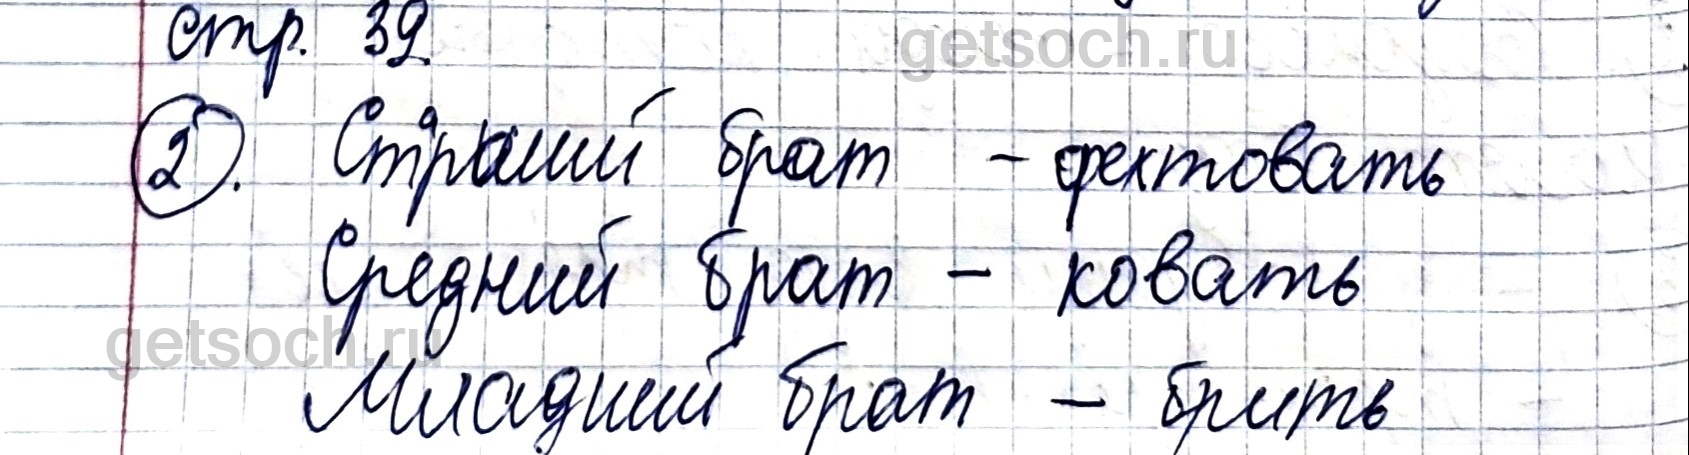 стр. 39.
getsoch.ru
2. Старший брат – фехтовать
Средний брат – ковать
getsoch.ru
Младший брат – брить